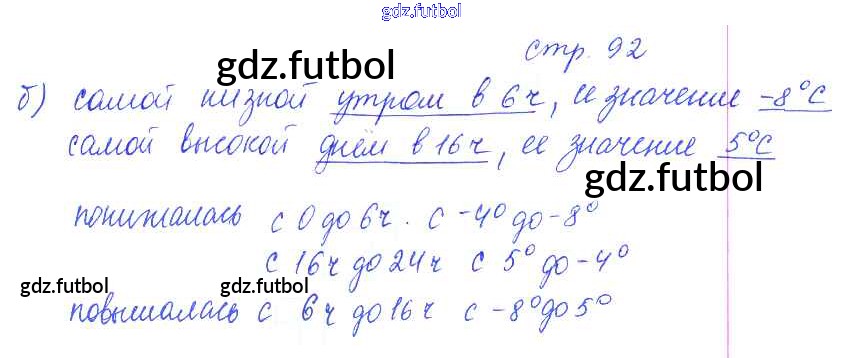 gdz.futbol
стр. 92
gdz.futbol
б) самой низкой утром в 6 ч, ее значение -8°С
самой высокой днём в 16 ч, ее значение 5°С
gdz.futbol
понижалась с 0 до 6 ч. с -4° до -8°
с 16 ч до 24 ч с 5° до -4°
gdz.futbol gdz.futbol gdz.futbol
повышалась с 6 ч до 16 ч с -8° до 5°